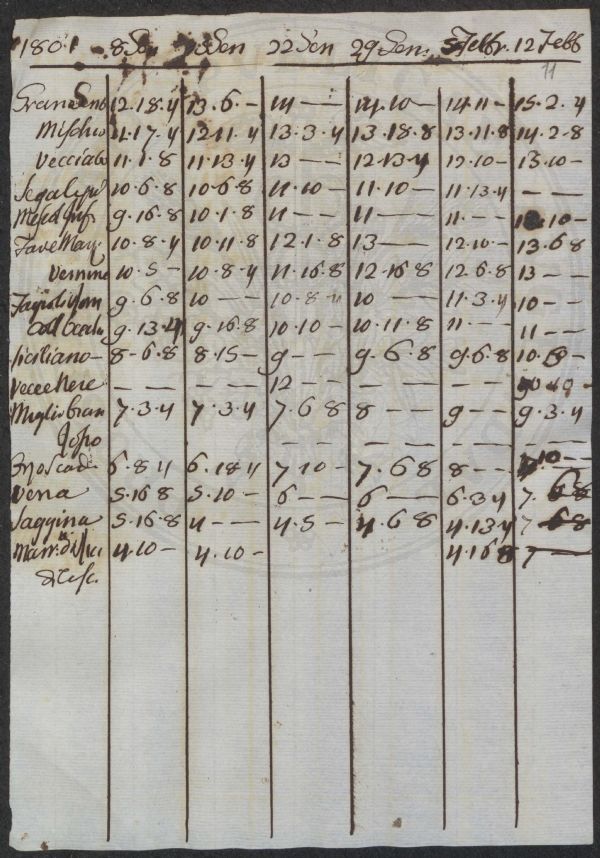 1801 8 Gen 15 Gen 22 Gen 29 Gen. 5 Febbr. 12 Febb
11
Grano Gent 12.18.4 13.6- 14 -- 14.10- 14.11- 15.2.4
Mischio 11.17.4 12.11.4 13.3.4 13.18.8 13.11.8 14.2-8
Vecciato 11.1.8 11.13.4 12 -- 12.13.4 12.10- 13.10-
Segale 10.6.8 10.6.8 11.10- 11.10- 11.13.4 - --
9.16.8 10.1.8 11 -- 11 -- 11.-- 10-
Fave Marz. 10.8.4 10.11.8 12.1.8 13 -- 12.10- 13.6.8
Vernine 10.5- 10.8.4 11.16.8 12.16.8 12.6.8 13 --
9.6.8 10 -- 10.8- 10 -- 11.3.4 10 --
9.13.4 9.16.8 10.10- 10.11.8 11 -- 11 --
Siciliano 8-6.8 8.15- 9 -- 9.6.8 9.6.8 10.
Vecce Nere - -- - -- 12 -- - -- - --
Miglio Gran 7.3.4 7.3.4 7.6.8 8 -- 9 -- 9.3.4
- -- - -- - -- - --
Moscad. 6.8.4 6.18.4 7.10- 7.6.8 8 -- 10 --
Vena 5.16.8 5.10- 6 -- 6 -- 6.3.4 7.
Saggina 5.16.8 4 -- 4.5- 4.6.8 4.13.4 7
4.10- 4.10- 4.16.8 7 --